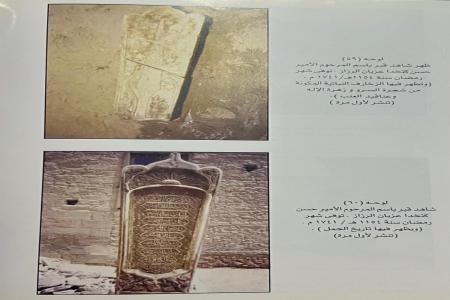 لوحه (٥٩)
ظهر شاهد قبر باسم المرحوم الأمير
حسن كتخدا عزبان الرزاز . توفى شهر
رمضان سنة ١١٥٤هـ/ ١٧٤١ م .
(وتظهر فيها الزخارف النباتية المكونة
من شجرة السرو و زهرة الإله
وعناقيد العنب ) .
( تنشر لأول مرة )
لوحه (٦٠)
شاهد قبر باسم المرحوم الأمير حسن
كتخدا عزبان الرزاز . توفى شهر
رمضان سنة ١١٥٤ هـ / ١٧٤١ م .
(ويظهر فيها تاريخ الجمل ) .
(تنشر لأول مرة)